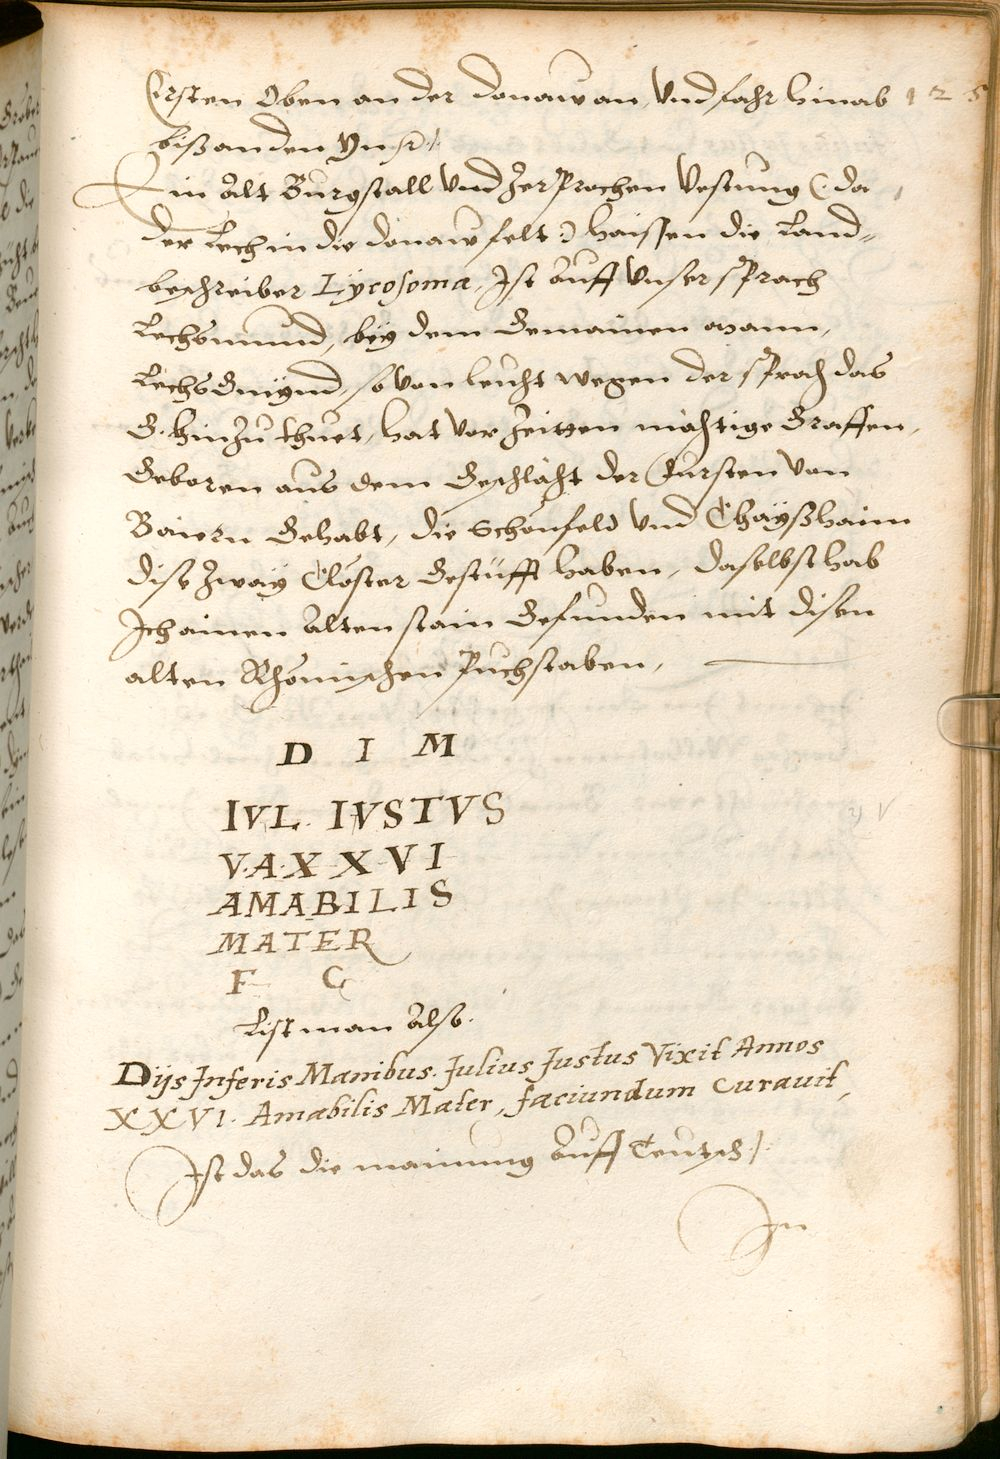 Ersten Oben an der donaw an, Vnd fahr hinab 125
biß an den Ynn /.
Ein Alt Burgstall Vnd Zersprochen Vestung (: da
der Lech in die donaw felt :) haissen die Land=
beschreiber Lycosoma, Ist Auff Vnser sprach
Lechsmund, beÿ dem Gemainen mann,
Lechs Gmÿnd, so Von leucht wegen der sprach das
G. hinzu thuet, hat Vor Zeitten måchtige Graffen,
Geboren aus dem Geschlächt der Fursten Von
Baiern Gehabt, die Schönfeld Vnd Chaÿßhaim
dise Zwaÿ Clöster Gestüfft haben, daselbst hab
Ich ainen Alten stain Gefunden mit disen
alten Rhömischen Puchstaben,
D I M
IVL. IVSTVS
V·A·X·X·VI
AMABILIS
MATER
F C
List man Also.
Dijs Inferis Manibus. Julius Justus Vixit Annos
XXVI. Amabilis Mater, faciundum Curauit,
Ist das die mainung Auff Teutsch /.
In